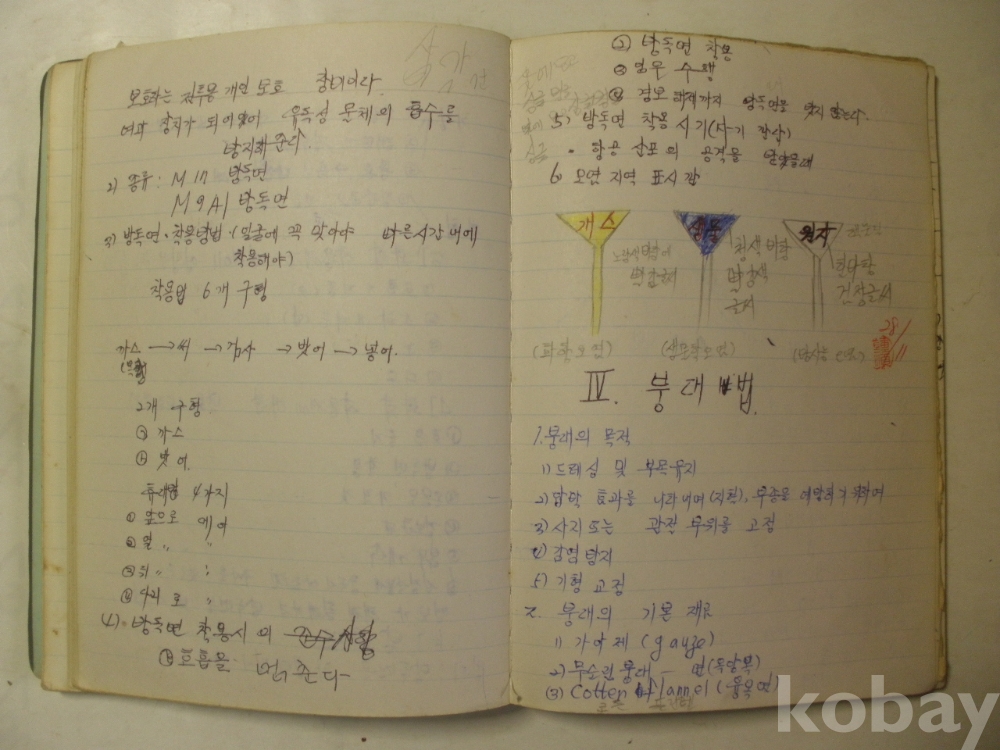 보호하는 전투용 개인 보호 장비이다.
여과 장치가 되어있어 유독성 물체의 흡수를
방지해 준다.
2) 종류: M17 방독면
M9A1 방독면
3) 방독면 착용방법 (얼굴에 꼭 맞아야 빠른시간내에
착용해야)
착용법 6개 구령
까스 → 써 → 검사 → 벗어 → 넣어.
2개 구령
㉮ 까스
㉯ 벗어.
휴대법 4가지
① 앞으로 메어
② 옆 〃 〃
③ 뒤 〃 〃
④ 다리로 〃
4) 방독면 착용시의
호흡을 멈춘다
② 방독면 착용
③ 임무 수행
④ 경보 해제까지 방독면을 벗지 않는다.
5) 방독면 착용 시기
• 항공 살포의 공격을 받았을때
6) 오염 지역 표시판
개스
생물
원자
노랑색 바탕에
빨강글씨
청색 바탕
빨강색
글씨
흰바탕
검정글씨
(화학오염)
(생물학오염)
28/11
IV. 붕대법.
1. 붕대의 목적
1) 드레싱 및 부목유지
2) 압박 효과를 나타내며(지혈), 부종을 예방하기 위하여
3) 사지 또는 관절 부위를 고정
4) 감염방지
5) 기형 교정
2. 붕대의 기본 재료
1) 가아제 (gauze)
2) 무소린 붕대 - 면
(3) Cotten flannel
kobay